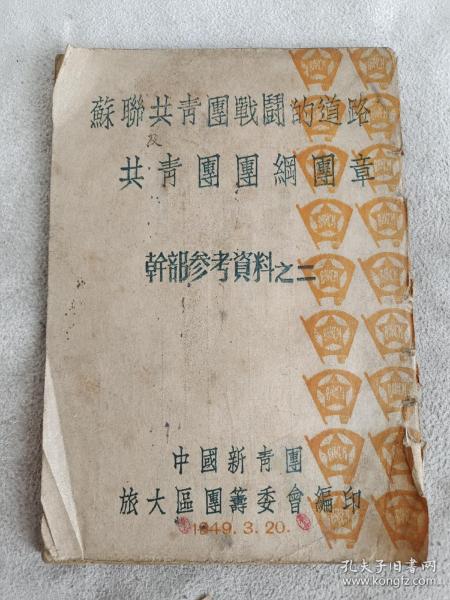 蘇聯共青團戰鬪的道路
及
共青團團綱團章
幹部参考資料之二
中國新青團
旅大區團籌委會編印
1949.3.20.
孔夫子旧书网
www.kongfz.com